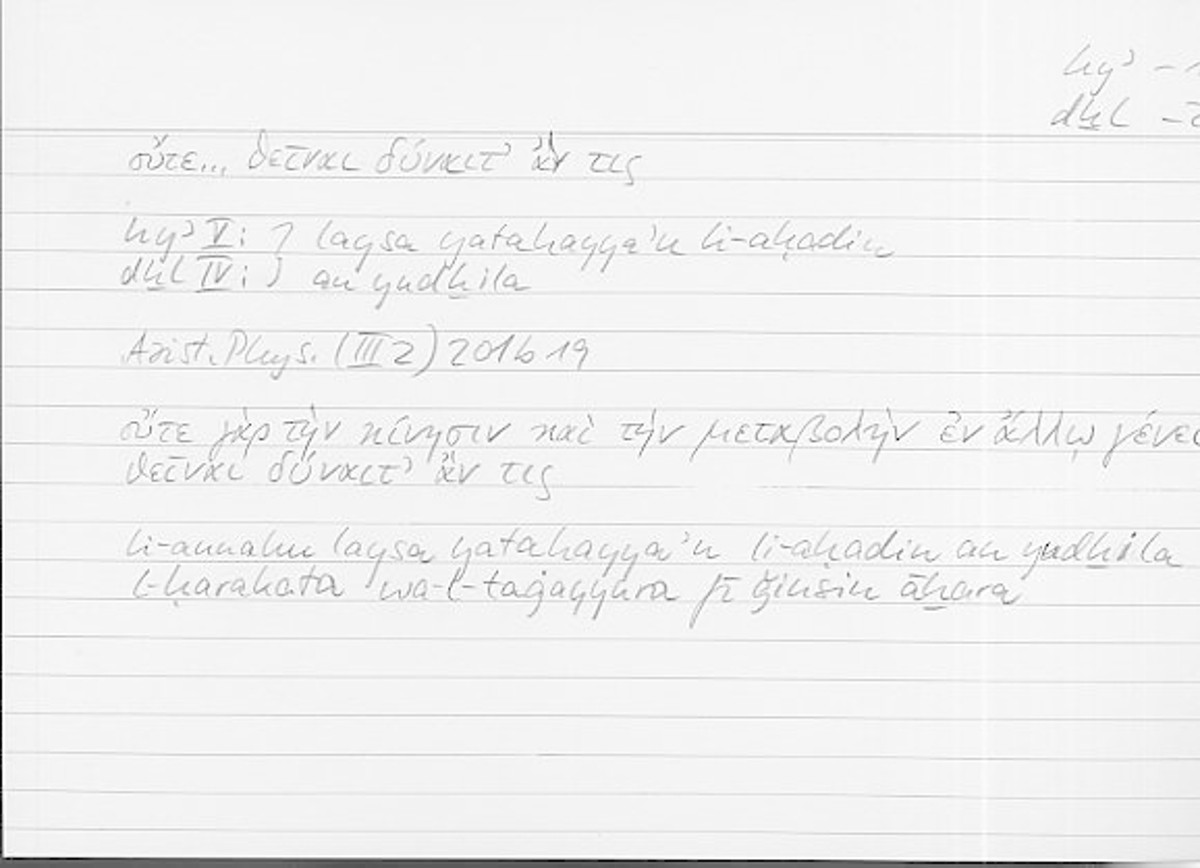 hyʾ –
dḫl –
οὔτε... θεῖναι δύναιτ' ἄν τις
hyʾ V: } laysa yatahayyaʾu li-aḥadin
dḫl IV: } an yudḫila
Arist. Phys. (III 2) 201b19
οὔτε γὰρ τὴν κίνησιν καὶ τὴν μεταβολὴν ἐν ἄλλῳ γένει
θεῖναι δύναιτ' ἄν τις
li-annahu laysa yatahayyaʾu li-aḥadin an yudḫila
l-ḥarakata wa-l-taġayyura fī ǧinsin āḫara